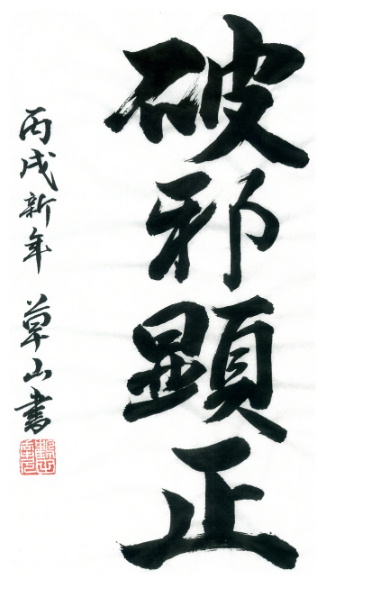 破邪顕正
丙戌新年 草山書